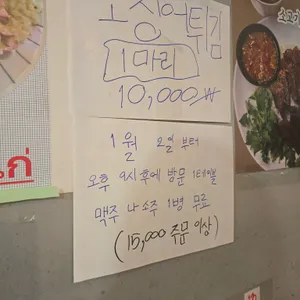 오징어튀김
1마리
10,000₩
1월 2일 부터
오후 9시후에 방문 1테이블
맥주 나 소주 1병 무료
(15,000 주문 이상)